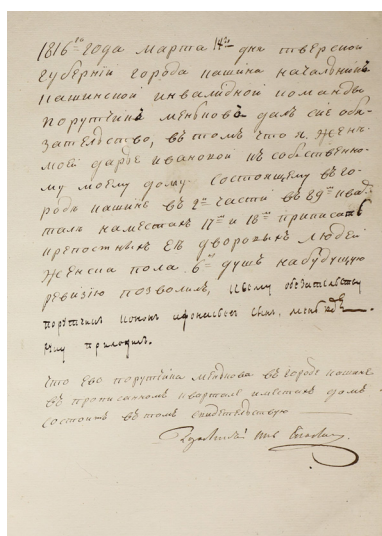 1816го года Марта 14го дня тверской
губернїи города Кашина начальникъ
Кашинской инвалидной команды
порутчикъ Меньковъ далъ сие обя-
зательство, въ томъ что я, жене
моей дарье ивановой къ собственно-
му моему дому. состоящему въ го-
роде Кашине въ 2й части въ 29м квар
тале наместах 17м и 18м приписать
крепостныхъ её дворовыхъ людей
женска пола. 6ть душъ на будущую
ревизїю позволилъ, к сему обязательству
порутчикъ
руку приложилъ.
что его порутчика Менькова въ городе Кашине
въ прописанномъ квартале и местахъ домъ
состоитъ въ томъ свидетельствую